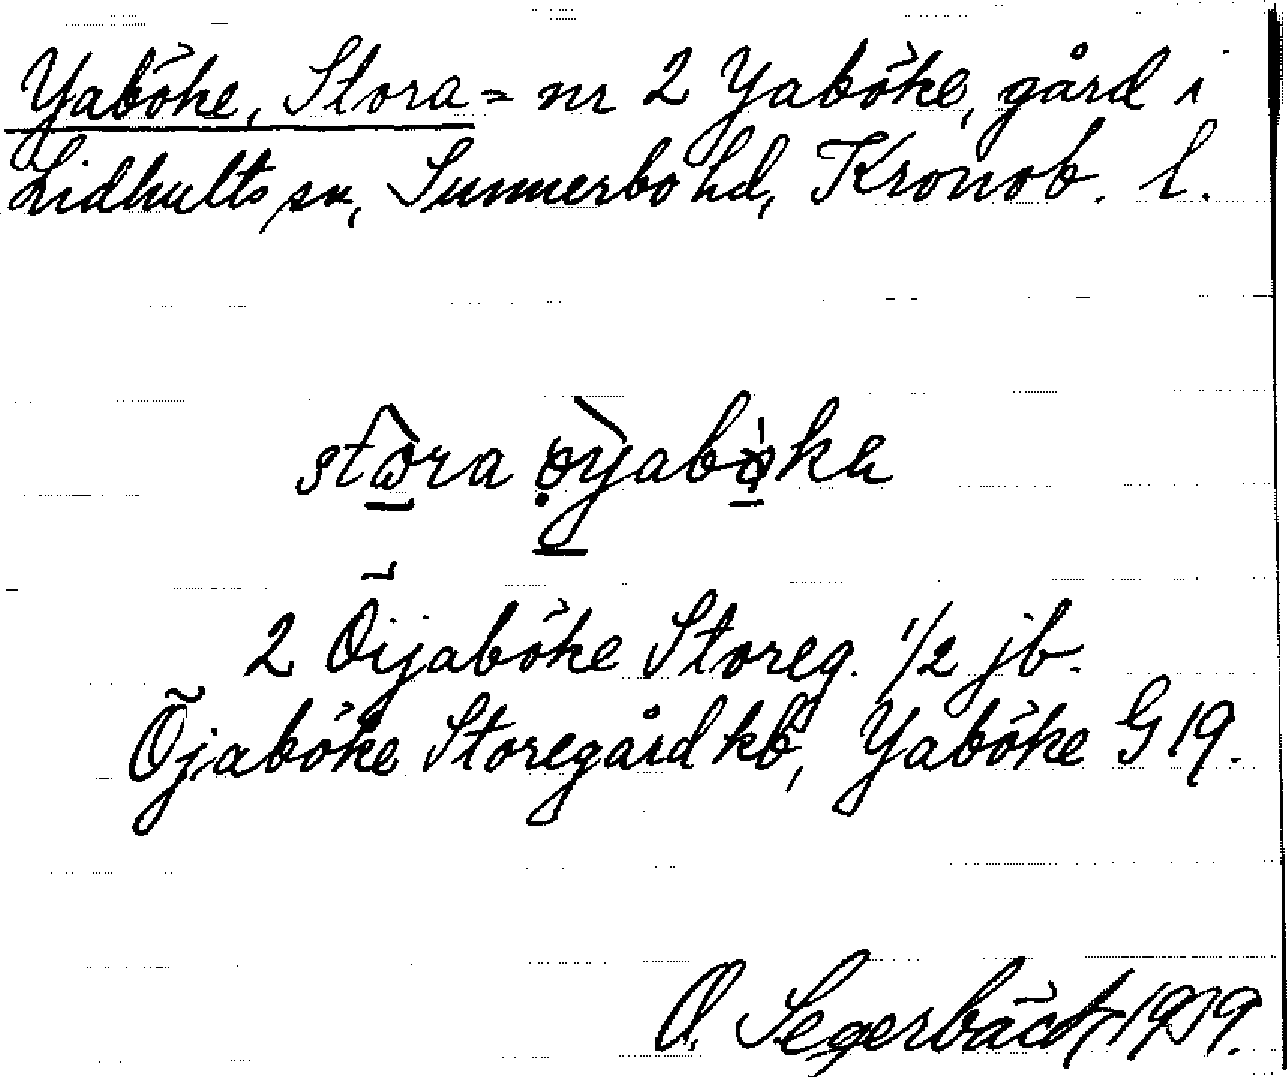 Yaböke, Stora = nr 2 Yaböke, gård i
Lidhults sn, Sunnerbo hd, Kronob. l.
stωra ø̣yabøka
2 Öijaböke Storeg. 1/2 jb.
Öjaböke Storegård kb, Yaböke G 19.
O. Segerbäck 1919.